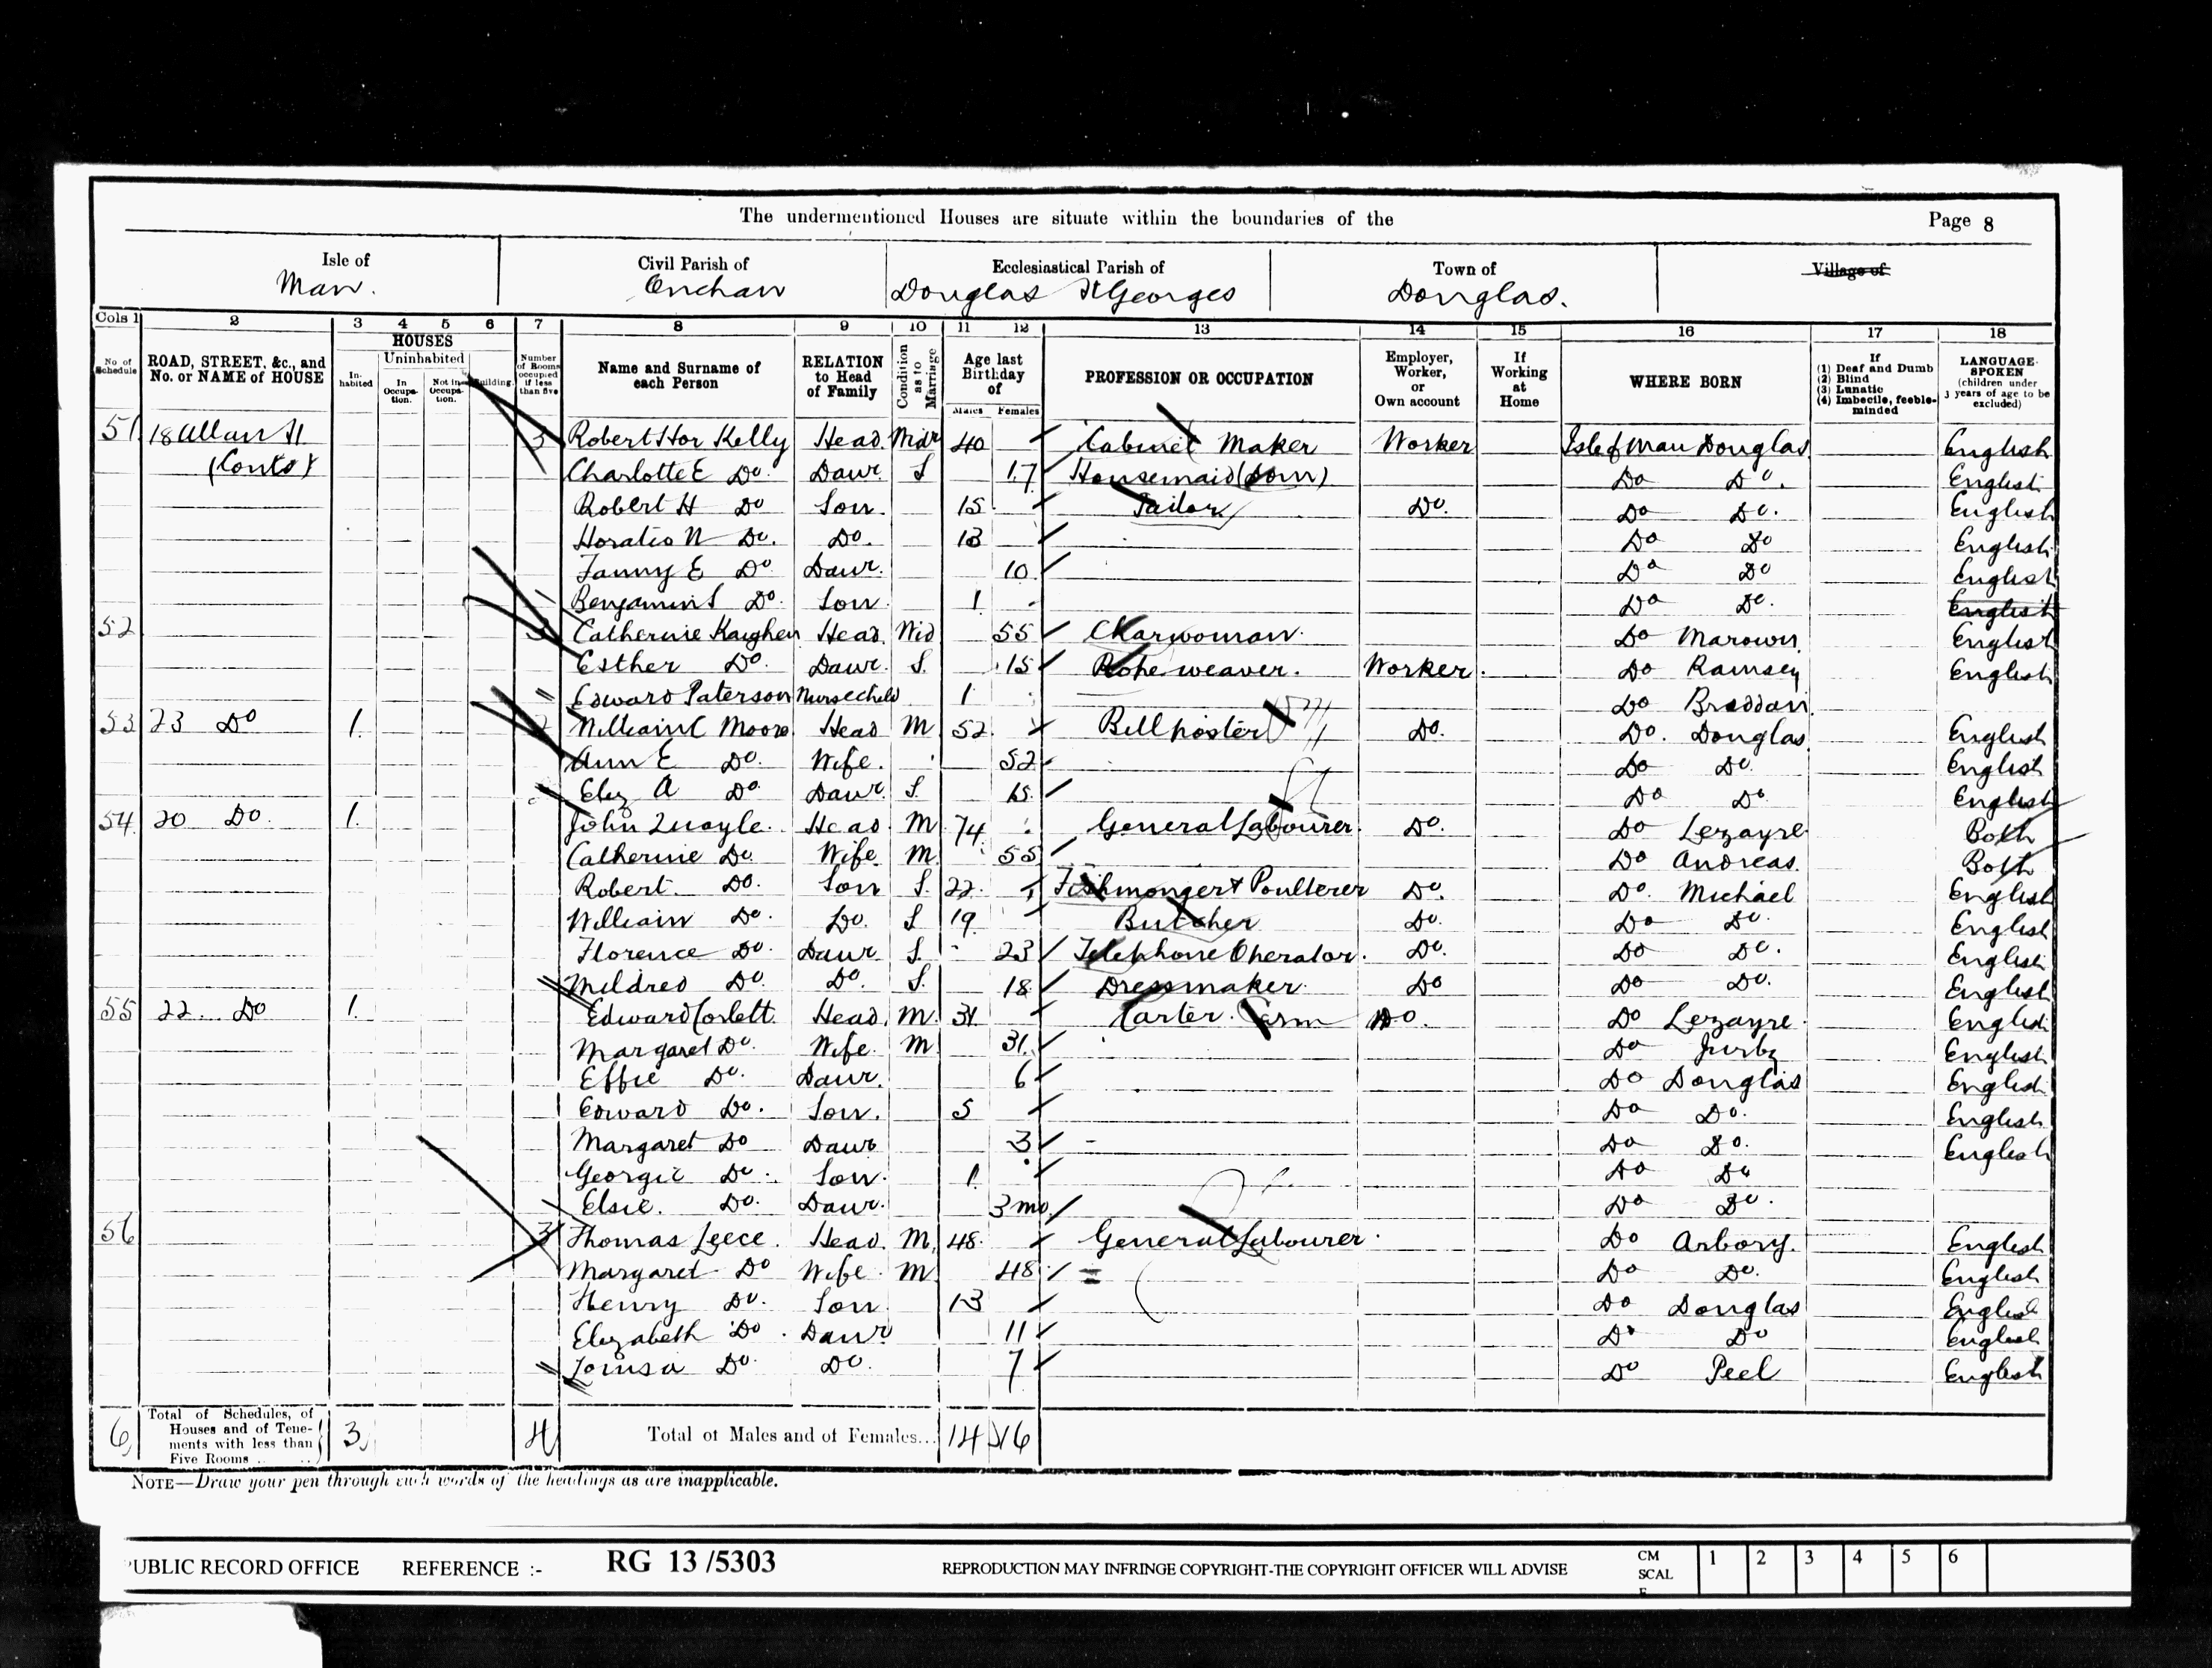 The undermentioned Houses are situate within the boundaries of the Page 8
Isle of Man. Civil Parish of Onchan Ecclesiastical Parish of Douglas St Georges Town of Douglas. Village of
Cols 1 2 3 4 5 6 7 8 9 10 11 12 13 14 15 16 17 18
No. of Schedule ROAD, STREET, &c., and No. or NAME of HOUSE HOUSES Inhabited Uninhabited In Occupation. Not in Occupation. Building. Number of Rooms occupied if less than five Name and Surname of each Person RELATION to Head of Family Condition as to Marriage Age last Birthday of Males Females PROFESSION OR OCCUPATION Employer, Worker, or Own account If Working at Home WHERE BORN If (1) Deaf and Dumb (2) Blind (3) Lunatic (4) Imbecile, feeble-minded LANGUAGE SPOKEN (children under 3 years of age to be excluded)
51 18 Allan St 3 Robert Hor Kelly Head Widr 40 Cabinet Maker Worker Isle of Man Douglas English
(Contd) Charlotte E Do. Daur. S 17 Housemaid (Dom) Do Do. English
Robert H Do Son. 15 Tailor Do. Do Do. English
Horatio N Do. Do. 13 Do Do English
Fanny E Do Daur. 10 Do Do English
Benjamin S Do. Son 1 Do Do. English
52 3 Catherine Kaighen Head Wid 55 Charwoman. Do Marown. English
Esther Do. Daur S. 15 Rope weaver. Worker. Do Ramsey English
Edward Paterson Nursechild 1 Do Braddan
53 23 Do 1. William C Moore Head M 52 Billposter Do. Do. Douglas English
Ann E Do. Wife. 52 Do Do. English
Eliz A Do Daur. S 15 Do Do English
54 20 Do. 1. John Quayle. Head M 74 General Labourer. Do. Do Lezayre Both
Catherine Do. Wife M. 55 Do Andreas. Both
Robert. Do. Son S. 22. Fishmonger & Poulterer Do. Do. Michael English
William Do. Do. S 19 Butcher Do. Do Do. English
Florence Do. Daur S. 23 Telephone Operator. Do. Do Do. English
Mildred Do. Do. S. 18 Dressmaker. Do Do Do. English
55 22. Do 1. Edward Corlett. Head. M. 31 Carter. Farm Do. Do Lezayre. English
Margaret Do. Wife. M 31. Do Jurby English
Effie Do. Daur. 6 Do Douglas English
Edward Do. Son. 5 Do Do. English
Margaret Do Daur 3 Do Do. English
Georgie Do. Son. 1 Do Do
Elsie. Do. Daur. 3 mo. Do Do.
56 3 Thomas Leece. Head. M. 48. General Labourer. Do Arbory. English
Margaret Do Wife. M 48 Do Do. English
Henry Do. Son 13 Do Douglas English
Elizabeth Do. Daur 11 Do Do English
Louisa Do. Do. 7 Do Peel English
6 Total of Schedules, of Houses and of Tenements with less than Five Rooms .. .. 3 4 Total of Males and of Females... 14 16
NOTE—Draw your pen through such words of the headings as are inapplicable.
PUBLIC RECORD OFFICE REFERENCE :- RG 13 /5303 REPRODUCTION MAY INFRINGE COPYRIGHT-THE COPYRIGHT OFFICER WILL ADVISE CM SCAL 1 2 3 4 5 6